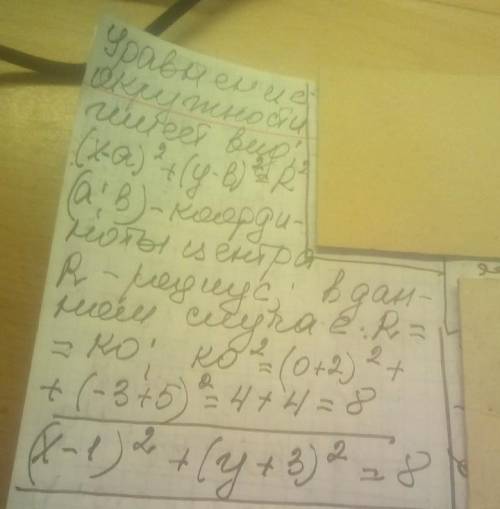 Уравнение
окружности
имеет вид:
(x-a)²+(y-в)²=R²
(a;в)-коорди-
наты центра
R - радиус; в дан-
ном случае: R=
= KO; KO²=(0+2)²+
+(-3+5)²=4+4=8
(x-1)²+(y+3)²=8